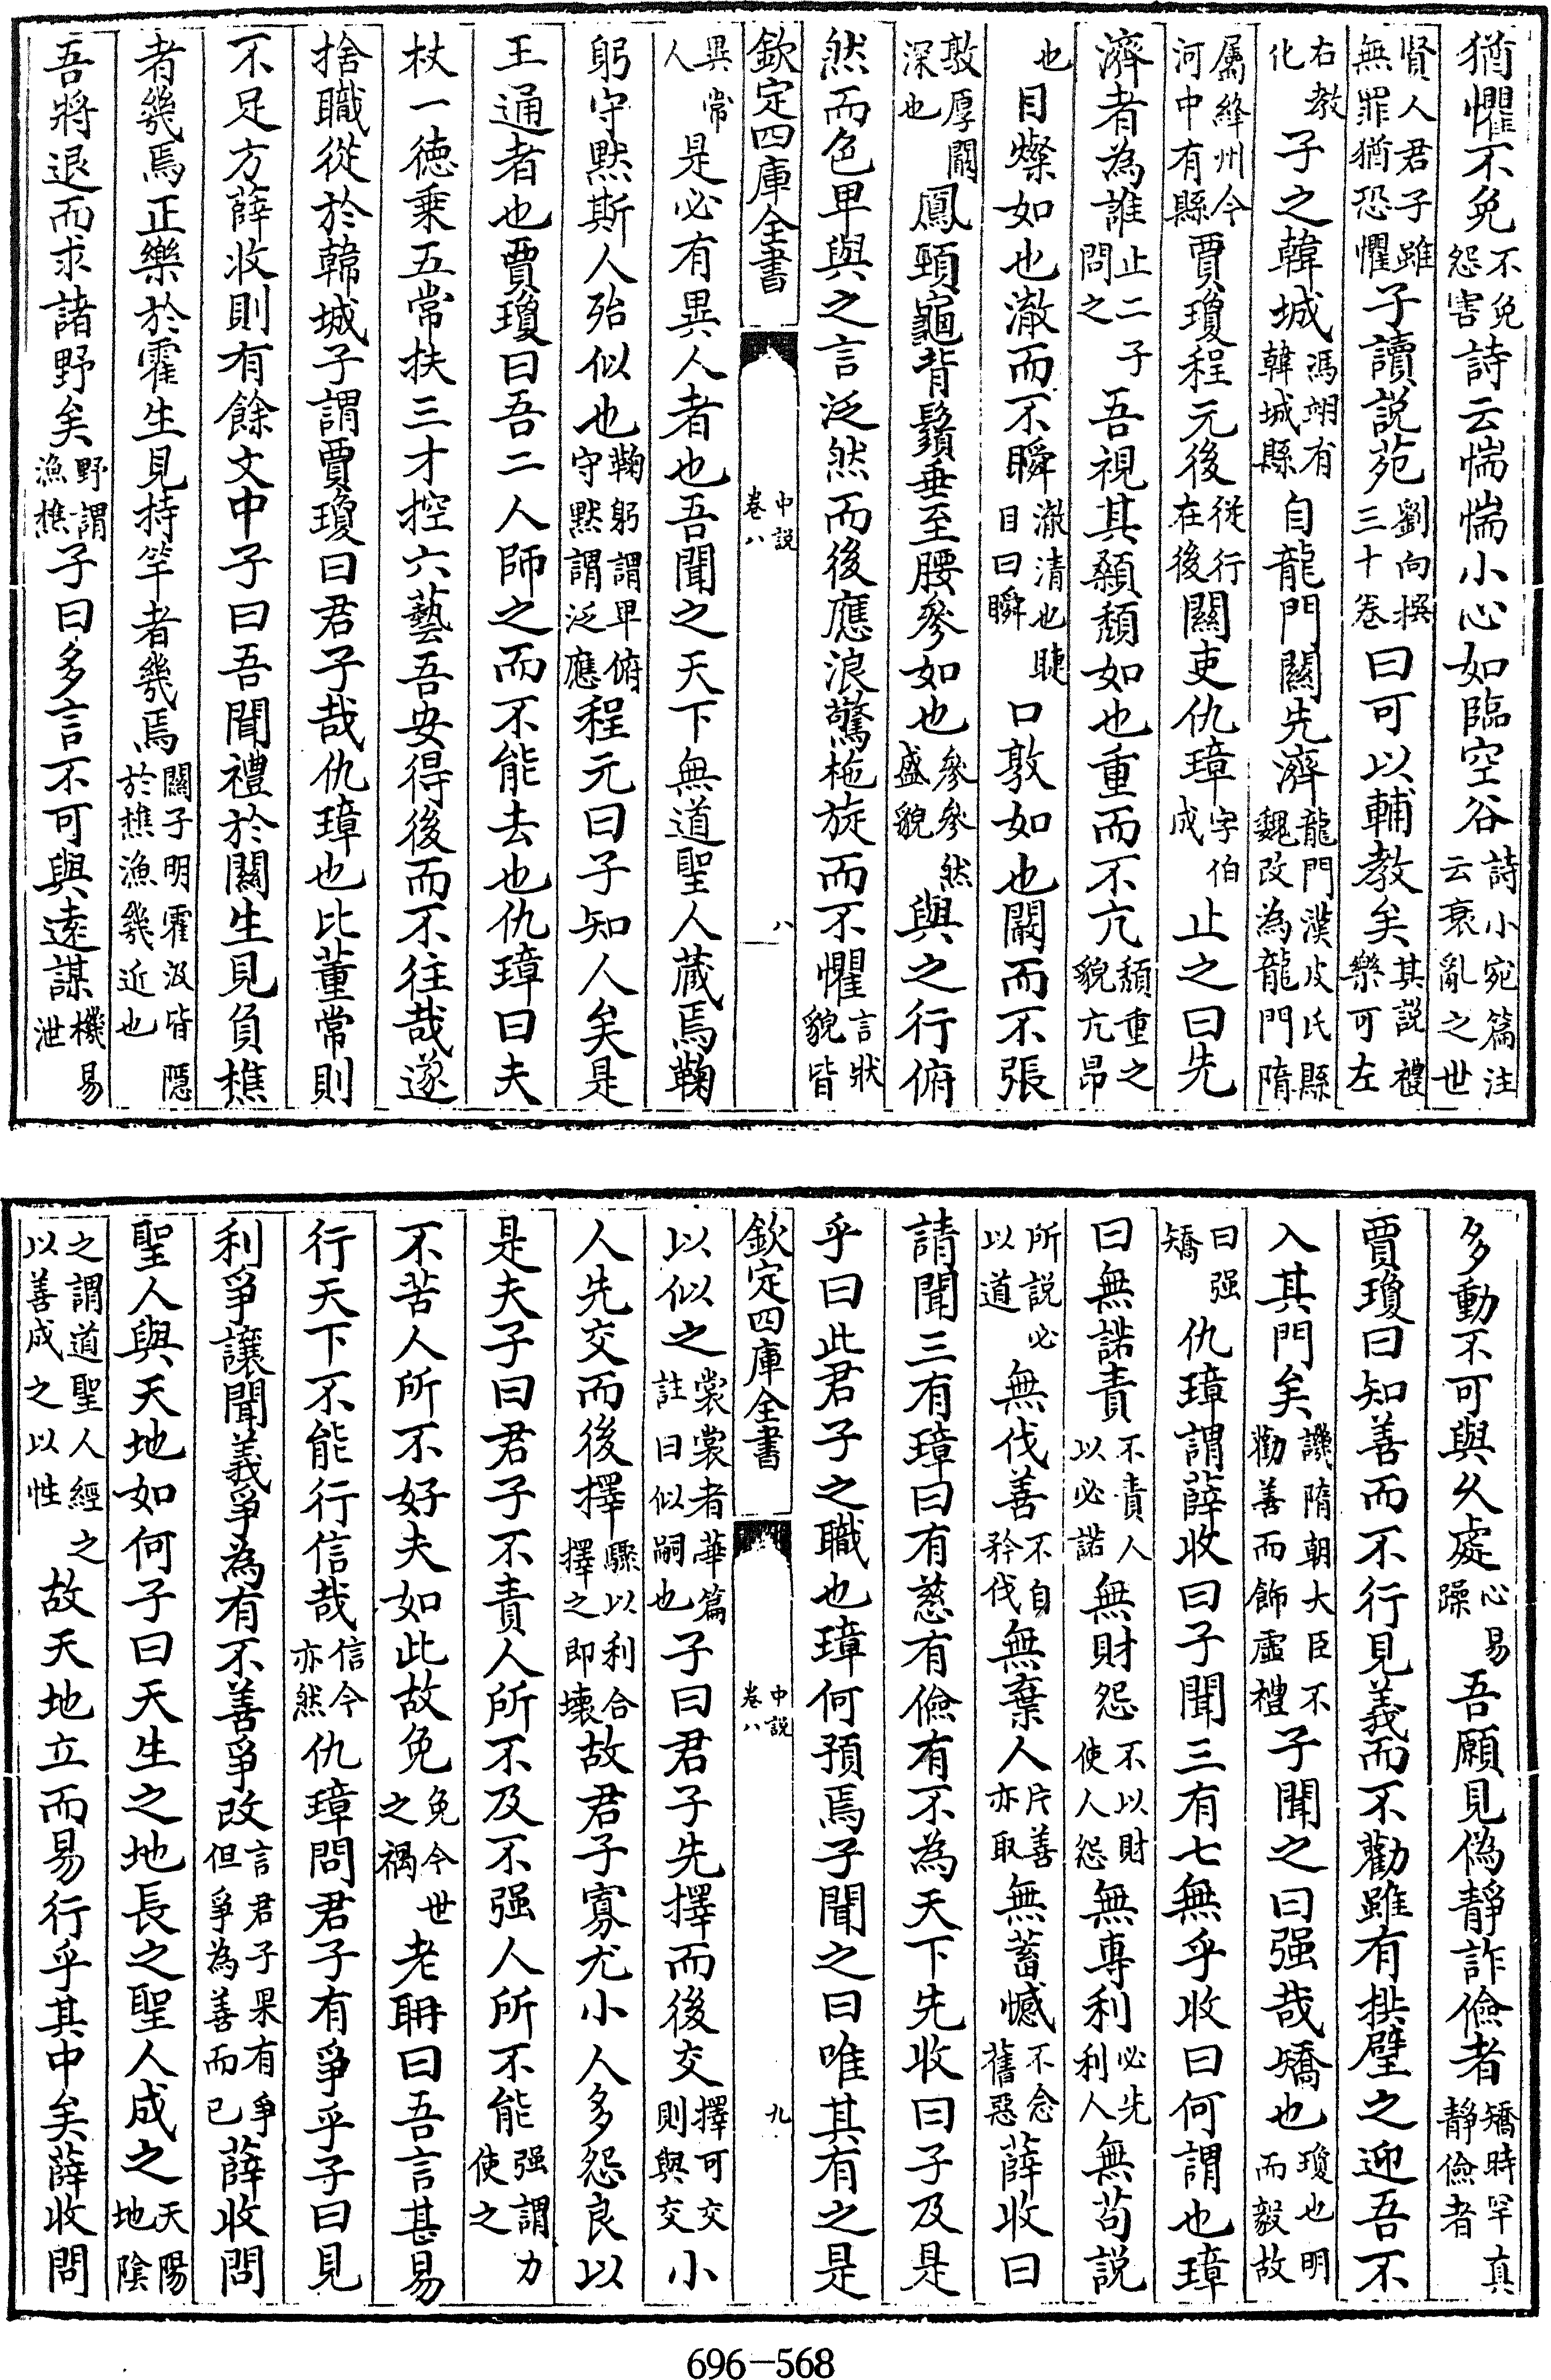 猶懼不免不免怨害詩云惴惴小心如臨空谷詩小宛篇注云衰亂之世
賢人君子雖無罪猶恐懼子讀說苑劉向撰三十卷曰可以輔教矣其說禮樂可左
右教化子之韓城馮翊有韓城縣自龍門關先濟龍門漢皮氏縣魏改為龍門隋
屬絳州今河中有縣賈瓊程元後從行在後關吏仇璋字伯成止之曰先
濟者為誰止二子問之吾視其顙頹如也重而不亢頹重之貌亢昂
也目燦如也澈而不瞬澈清也睫目曰瞬口敦如也闢而不張
敦厚闢深也鳳頸龜背鬚垂至腰參如也參參然盛貌與之行俯
然而色卑與之言泛然而後應浪驚柂旋而不懼言狀貌皆
欽定四庫全書 中說卷八 八
異常人是必有異人者也吾聞之天下無道聖人蔵焉鞠
躬守黙斯人殆似也鞠躬謂卑俯守黙謂泛應程元曰子知人矣是
王通者也賈瓊曰吾二人師之而不能去也仇璋曰夫
杖一徳乗五常扶三才控六藝吾安得後而不往哉遂
捨職從於韓城子謂賈瓊曰君子哉仇璋也比董常則
不足方薛收則有餘文中子曰吾聞禮於關生見負樵
者幾焉正樂於霍生見持竿者幾焉關子明霍汲皆隱於樵漁幾近也
吾將退而求諸野矣野謂漁樵子曰多言不可與逺謀機易泄
多動不可與久處心易躁吾願見偽靜詐儉者矯時罕真靜儉者
賈瓊曰知善而不行見義而不勸雖有拱璧之迎吾不
入其門矣譏隋朝大臣不勸善而飾虛禮子聞之曰强哉矯也瓊也明而毅故
曰强矯仇璋謂薛收曰子聞三有七無乎收曰何謂也璋
曰無諾責不責人以必諾無財怨不以財使人怨無專利必先利人無苟説
所説必以道無伐善不自矜伐無棄人片善亦取無蓄憾不念舊惡薛收曰
請聞三有璋曰有慈有儉有不為天下先收曰子及是
乎曰此君子之職也璋何預焉子聞之曰唯其有之是
欽定四庫全書 中說卷八 九
以似之裳裳者華篇註曰似嗣也子曰君子先擇而後交擇可交則與交小
人先交而後擇驟以利合擇之即壊故君子寡尤小人多怨良以
是夫子曰君子不責人所不及不强人所不能强謂力使之
不苦人所不好夫如此故免免今世之禍老聃曰吾言甚易
行天下不能行信哉信今亦然仇璋問君子有爭乎子曰見
利爭讓聞義爭為有不善爭改言君子果有爭但爭為善而已薛收問
聖人與天地如何子曰天生之地長之聖人成之天陽地陰
之謂道聖人經之以善成之以性故天地立而易行乎其中矣薛收問
696-568